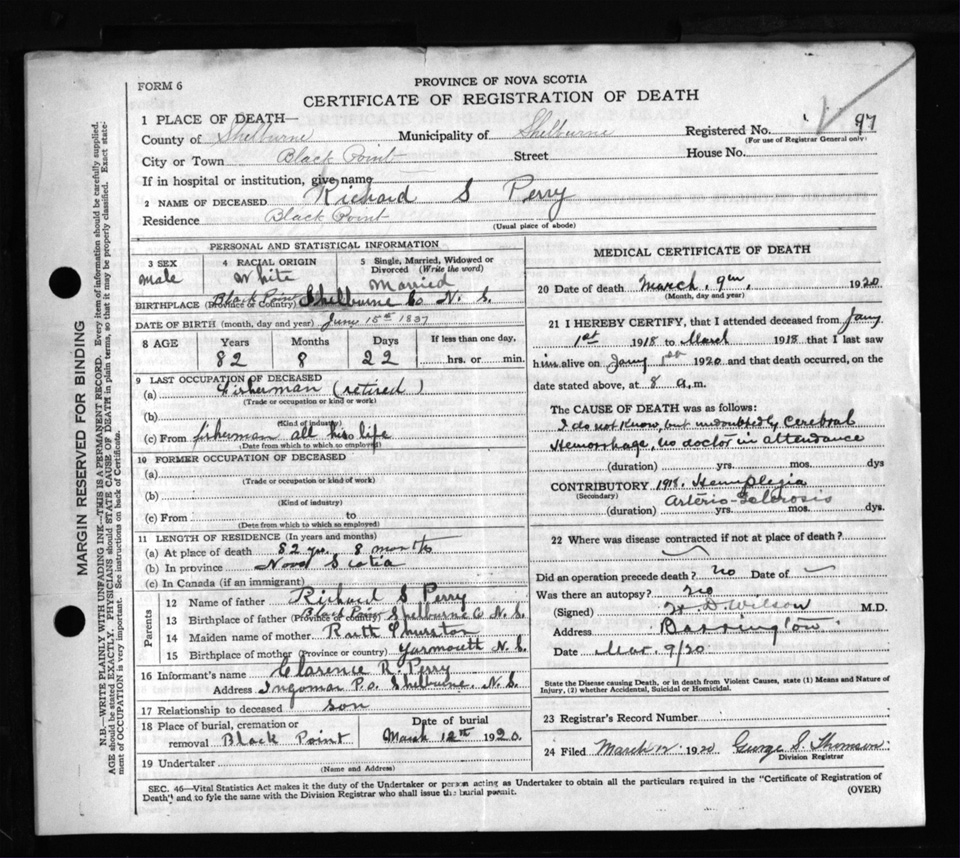 FORM 6
PROVINCE OF NOVA SCOTIA
CERTIFICATE OF REGISTRATION OF DEATH
1 PLACE OF DEATH—
County of Shelburne Municipality of Shelburne Registered No. 97
(For use of Registrar General only)
City or Town Black Point Street House No.
If in hospital or institution, give name
2 NAME OF DECEASED Richard S Perry
Residence Black Point
(Usual place of abode)
PERSONAL AND STATISTICAL INFORMATION
3 SEX 4 RACIAL ORIGIN 5 Single, Married, Widowed or Divorced (Write the word)
Male White Married
BIRTHPLACE (Province or Country) Black Point Shelburne Co N. S.
DATE OF BIRTH (month, day and year) June 15th 1837
8 AGE Years Months Days If less than one day,
82 8 22 hrs. or min.
9 LAST OCCUPATION OF DECEASED
(a) Fisherman (retired)
(Trade or occupation or kind or work)
(b)
(Kind of industry)
(c) From fisherman all his life
(Date from which to which so employed)
10 FORMER OCCUPATION OF DECEASED
(a)
(Trade or occupation or kind of work)
(b)
(Kind of industry)
(c) From to
(Date from which to which so employed)
11 LENGTH OF RESIDENCE (In years and months)
(a) At place of death 82 yrs. 8 months
(b) In province Nova Scotia
(c) In Canada (if an immigrant)
Parents
12 Name of father Richard S Perry
13 Birthplace of father (Province or country) Black Point Shelburne Co N. S.
14 Maiden name of mother Ruth Thurston
15 Birthplace of mother (Province or country) Yarmouth N. S.
16 Informant's name Clarence R. Perry
Address Ingomar P.O. Shelburne, N. S.
17 Relationship to deceased son
18 Place of burial, cremation or Date of burial
removal Black Point March 12th 1920.
19 Undertaker
(Name and Address)
MEDICAL CERTIFICATE OF DEATH
20 Date of death March. 9th, 1920
(Month, day and year)
21 I HEREBY CERTIFY, that I attended deceased from Jany
1st 1918 to March 1918 that I last saw
him alive on Jany 1st 1920 and that death occurred, on the
date stated above, at 8 a.m.
The CAUSE OF DEATH was as follows:
I do not know, but undoubtedly Cerebral
Hemorrhage, no doctor in attendance
(duration) yrs. mos. dys
CONTRIBUTORY 1918. Hemiplegia
(Secondary) Arterio-Sclerosis
(duration) yrs. mos. dys.
22 Where was disease contracted if not at place of death?
Did an operation precede death? No Date of
Was there an autopsy? No
(Signed) H. D. Wilson M.D.
Address Barrington
Date Mar. 9/20
State the Disease causing Death, or in death from Violent Causes, state (1) Means and Nature of
Injury, (2) whether Accidental, Suicidal or Homicidal.
23 Registrar's Record Number
24 Filed March 12. 1920 George S. Thomson
Division Registrar
SEC. 46—Vital Statistics Act makes it the duty of the Undertaker or person acting as Undertaker to obtain all the particulars required in the "Certificate of Registration of
Death" and to fyle the same with the Division Registrar who shall issue the burial permit.
(OVER)
MARGIN RESERVED FOR BINDING
N.B.—WRITE PLAINLY WITH UNFADING INK—THIS IS A PERMANENT RECORD. Every item of information should be carefully supplied.
AGE should be stated EXACTLY. PHYSICIANS should STATE CAUSE OF DEATH in plain terms, so that it may be properly classified. Exact state-
ment of OCCUPATION is very important. See instructions on back of Certificate.